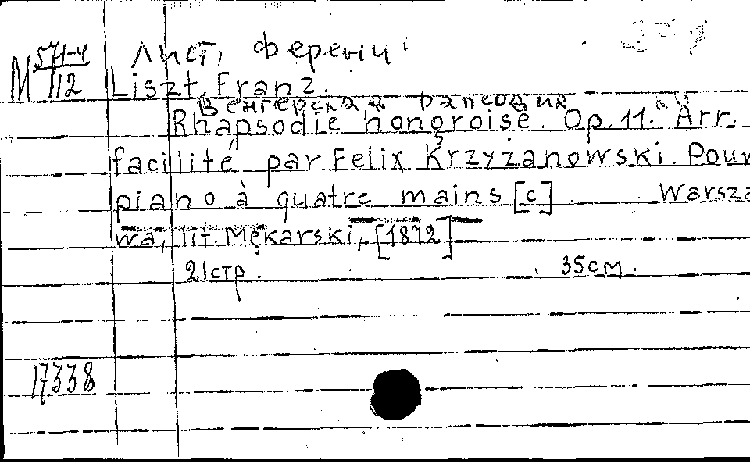 М 571-4/112
Лист, Ференц
Liszt, Franz.
Венгерская рапсодия
Rhapsodie hongroise. Op. 11. Arr.
facilité par Felix Krzyżanowski. Pour
piano à quatre mains [c] Warsza
wa, lit. Mękarski, [1872]
21стр. 35см.
17338